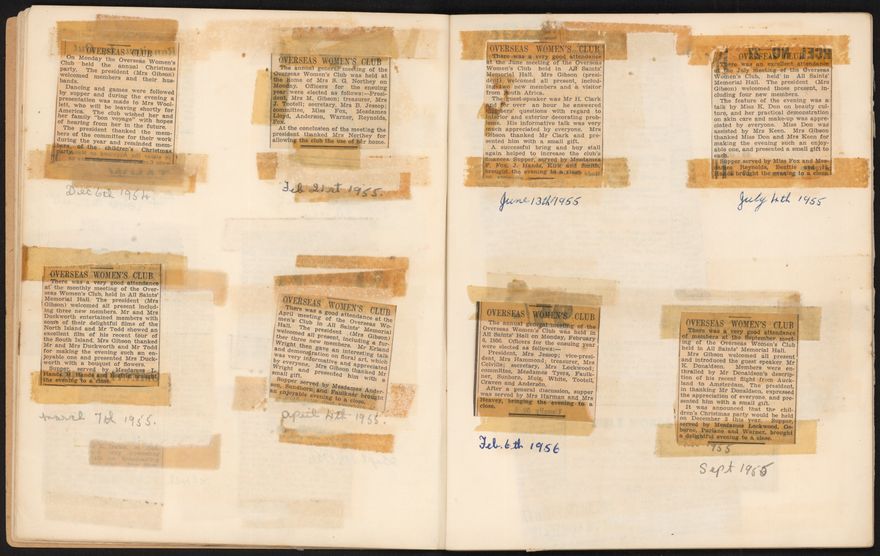 OVERSEAS WOMEN'S CLUB
On Monday the Overseas Women's
Club held the annual Christmas
party. The president (Mrs Gibson)
welcomed members and their hus-
bands.
Dancing and games were followed
by supper and during the evening a
presentation was made to Mrs Wool-
lett, who will be leaving shortly for
America. The club wished her and
her family "bon voyage" with hopes
of hearing from her in the future.
The president thanked the mem-
bers of the committee for their work
during the year and reminded mem-
bers of the children's Christmas
Dec 6th 1954
OVERSEAS WOMEN'S CLUB
The annual general meeting of the
Overseas Women's Club was held at
the home of Mrs S. G. Northey on
Monday. Officers for the ensuing
year were elected as follows:—Presi-
dent, Mrs M. Gibson; treasurer, Mrs
J. Tootell; secretary, Mrs B. Jessop;
committee, Miss Fox, Mesdames
Lloyd, Anderson, Warner, Reynolds,
At the conclusion of the meeting the
president thanked Mrs Northey for
allowing the club the use of her home.
Feb 21st 1955.
OVERSEAS WOMEN'S CLUB
There was a very good attendance
at the monthly meeting of the Over-
seas Women's Club, held in All Saints'
Memorial Hall. The president (Mrs
Gibson) welcomed all present includ-
ing three new members. Mr and Mrs
Duckworth entertained members with
some of their delightful films of the
North Island and Mr Todd showed an
excellent film of his recent tour of
the South Island. Mrs Gibson thanked
Mr and Mrs Duckworth and Mr Todd
for making the evening such an en-
joyable one and presented Mrs Duck-
worth with a bouquet of flowers.
Supper, served by Mesdames
the evening to a close.
March 7th 1955.
OVERSEAS WOMEN'S CLUB
There was a good attendance at the
April meeting of the Overseas Wo-
men's Club in All Saints' Memorial
Hall. The president (Mrs Gibson)
welcomed all present, including a fur-
ther three new members. Mr Roland
Wright then gave an interesting talk
and demonstration on floral art which
was very informative and appreciated
by everyone. Mrs Gibson thanked Mr
Wright and presented him with a
small gift.
Supper served by Mesdames Ander-
son, Sunderson, and Faulkner brought
an enjoyable evening to a close.
April 4th 1955.
OVERSEAS WOMEN'S CLUB
There was a very good attendance
at the June meeting of the Overseas
Women's Club held in All Saints'
Memorial Hall. Mrs Gibson (presi-
dent) welcomed all present, includ-
ing new members and a visitor
from South Africa.
The guest-speaker was Mr H. Clark
and for over an hour he answered
members' questions with regard to
interior and exterior decorating prob-
lems. His informative talk was very
much appreciated by everyone. Mrs
Gibson thanked Mr Clark and pre-
sented him with a small gift.
A successful bring and buy stall
again helped to increase the club's
finances. Supper, served by Mesdames
F. Fox, J. Hands, Kirk and Smith,
brought the evening to a close.
June 13th/1955
OVERSEAS WOMEN'S CLUB
There was an excellent attendance
at the July meeting of the Overseas
Women's Club, held in All Saints'
Memorial Hall. The president (Mrs
Gibson) welcomed those present, in-
cluding four new members.
The feature of the evening was a
talk by Miss K. Don on beauty cul-
ture, and her practical demonstration
on skin care and make-up was appre-
ciated by everyone. Miss Don was
assisted by Mrs Keen. Mrs Gibson
thanked Miss Don and Mrs Keen for
making the evening such an enjoy-
able one, and presented a small gift to
each.
Supper served by Miss Fox and Mes-
dames Reynolds, Beattie and
brought the evening to a close.
July 4th 1955
OVERSEAS WOMEN'S CLUB
The annual general meeting of the
Overseas Women's Club was held in
All Saints' Hall on Monday, February
6, 1956. Officers for the ensuing year
were elected as follows:—
President, Mrs Jessop; vice-presi-
dent, Mrs Hammond; treasurer, Mrs
Colville; secretary, Mrs Lockwood;
committee, Mesdames Tyers, Faulk-
ner, Sanborn, Moig, White, Tootell,
Craven and Anderson.
After a general discussion, supper
was served by Mrs Harman and Mrs
Heavey, bringing the evening to a
close.
Feb. 6th 1956
OVERSEAS WOMEN'S CLUB
There was a very good attendance
of members at the September meet-
ing of the Overseas Women's Club
held in All Saints' Memorial Hall.
Mrs Gibson welcomed all present
and introduced the guest speaker Mr
K. Donaldson. Members were en-
thralled by Mr Donaldson's descrip-
tion of his recent flight from Auck-
land to Amsterdam. The president,
in thanking Mr Donaldson, expressed
the appreciation of everyone, and pre-
sented him with a small gift.
It was announced that the chil-
dren's Christmas party would be held
on December 3 this year. Supper,
served by Mesdames Lockwood, Os-
borne, Parlane and Warner, brought
a delightful evening to a close.
1955
Sept 1955